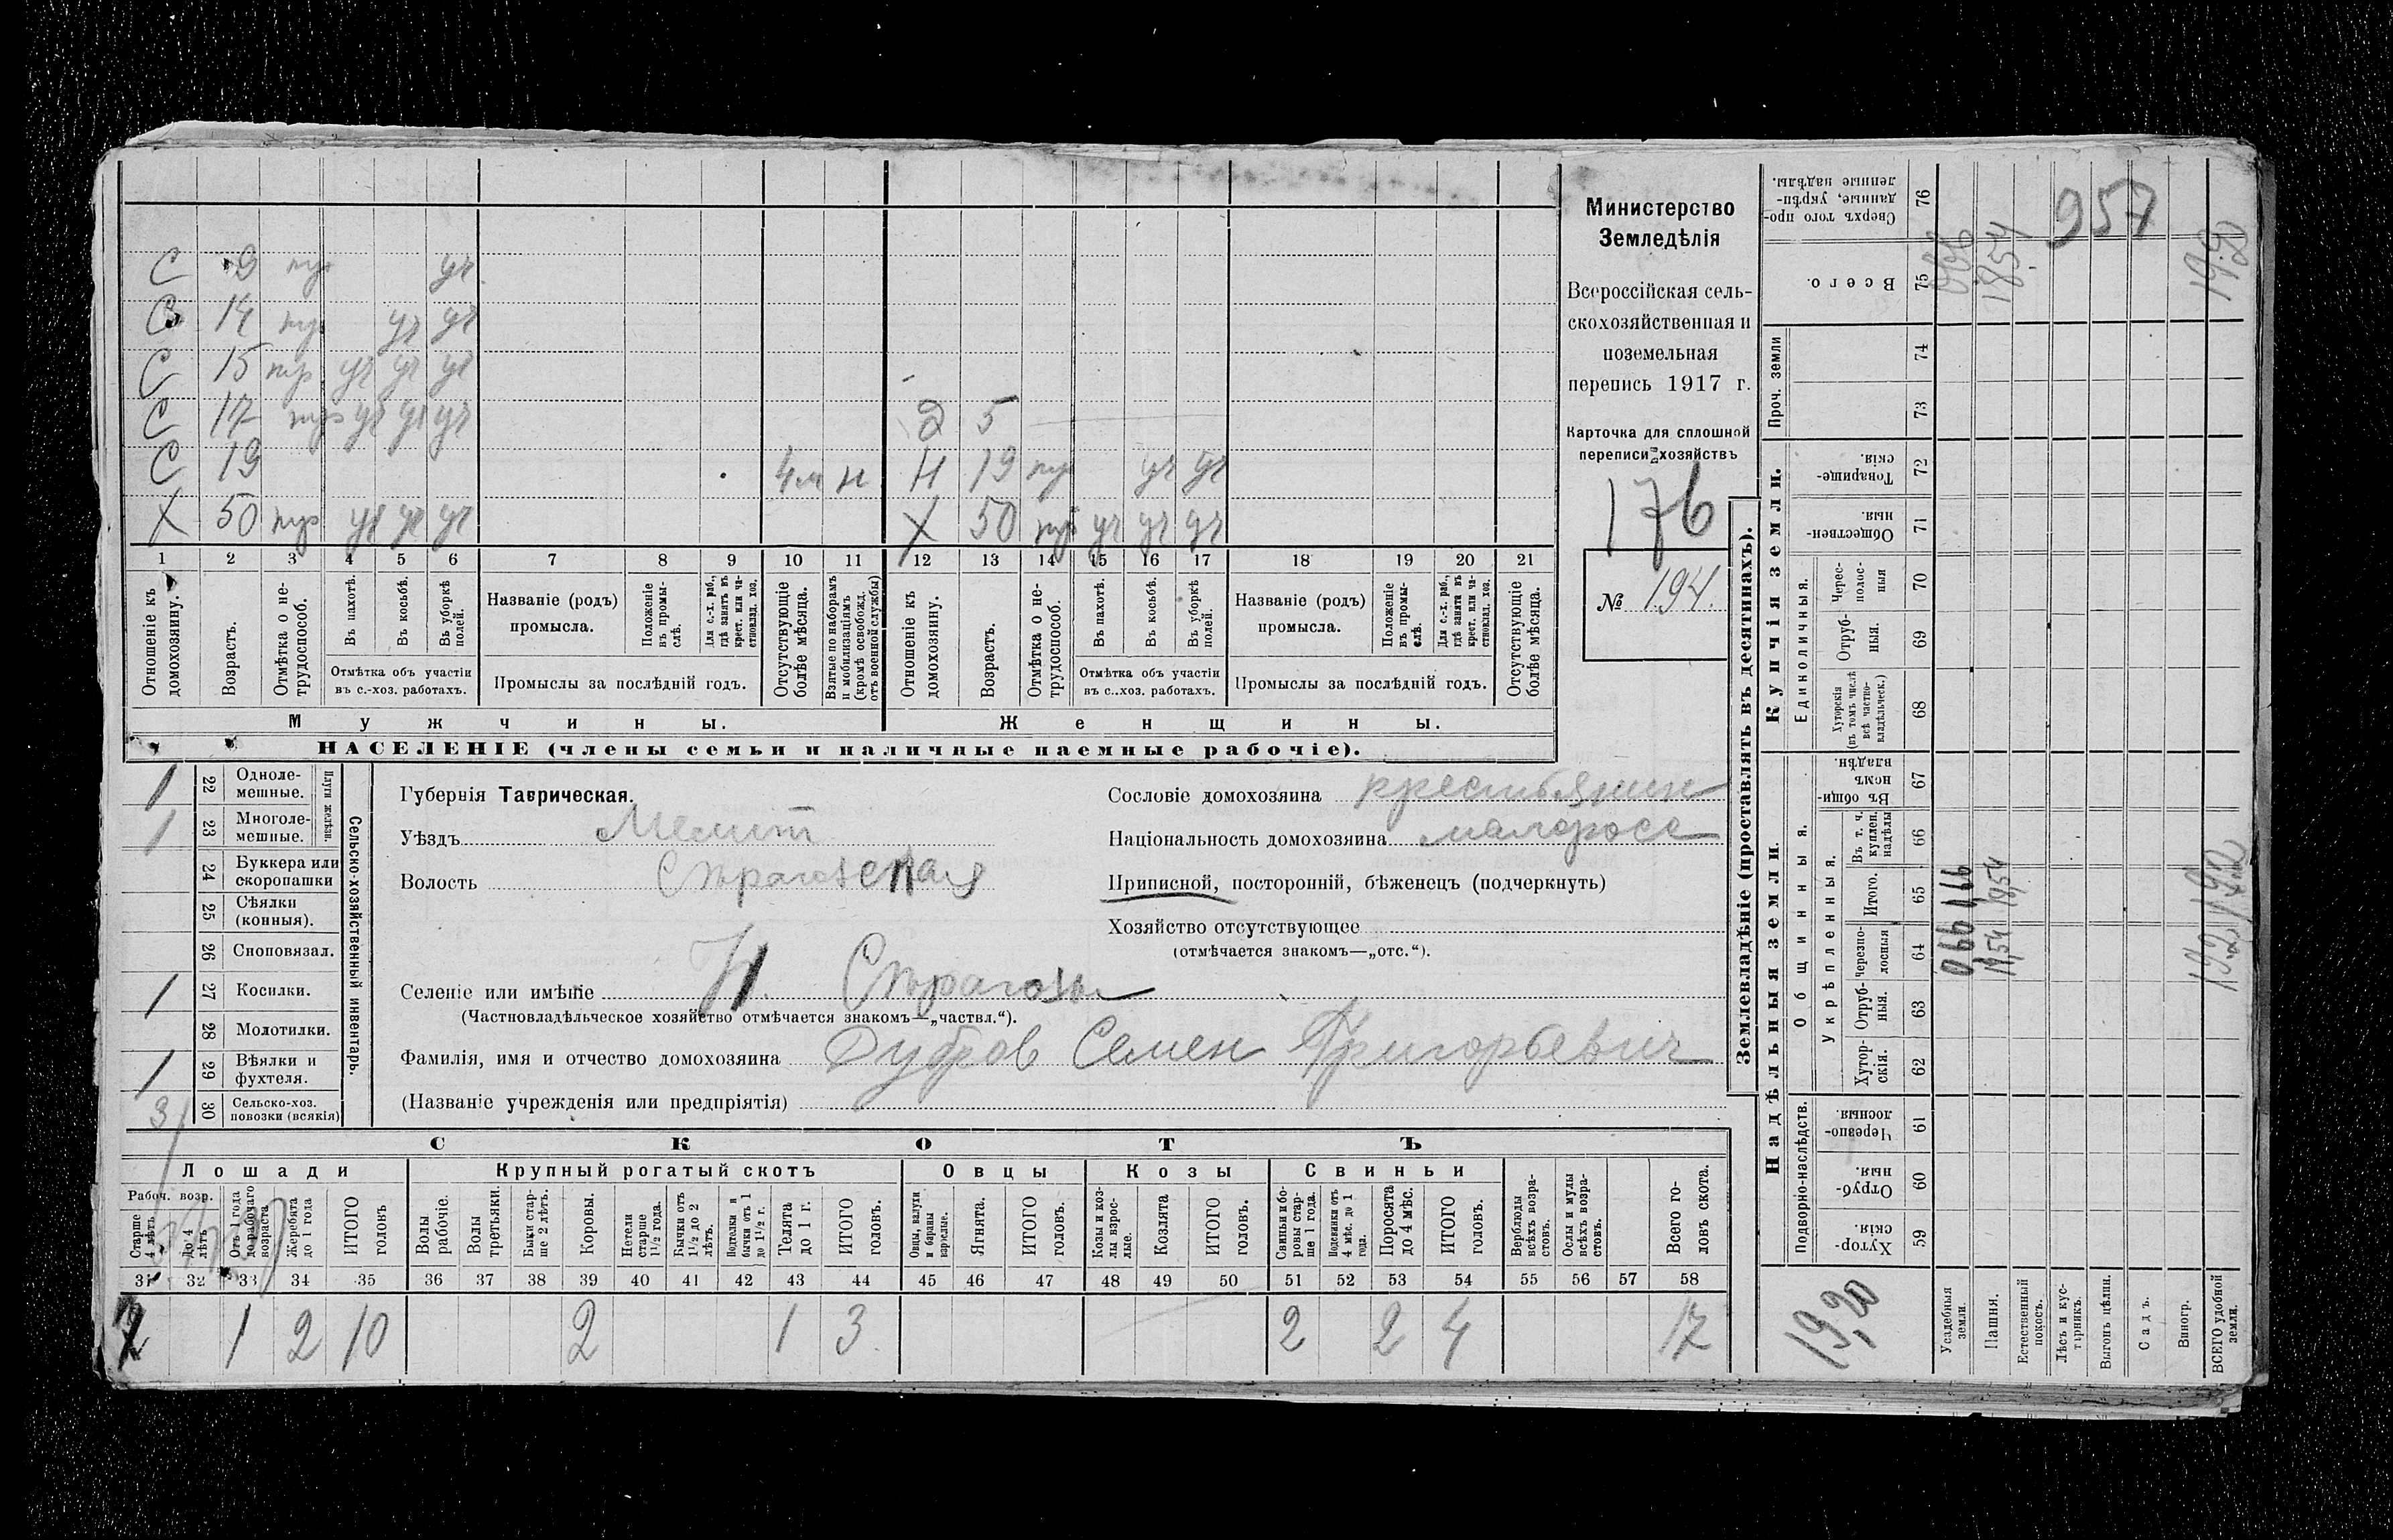 С 9 нр уч
С 14 нр уч уч
С 15 нр уч уч уч
С 17 нр уч уч уч Д 5
С 19 4м н Н 19 нр уч уч
Х 50 нр уч уч уч Х 50 нр уч уч уч
1 2 3 4 5 6 7 8 9 10 11 12 13 14 15 16 17 18 19 20 21
Отношеніе къ домохозяину.
Возрастъ.
Отмѣтка о не-трудоспособ.
Въ пахотѣ.
Въ косьбѣ.
Въ уборкѣ полей.
Отмѣтка объ участіи въ с.-хоз. работахъ.
Названіе (родъ) промысла.
Положеніе въ промы-слѣ.
Для с.-х. раб., гдѣ занятъ въ крест. или ча-стновлад. хоз.
Промыслы за послѣдній годъ.
Отсутствующіе болѣе мѣсяца.
Взятые по наборамъ и мобилизаціямъ (кромѣ освобожд. отъ военной службы)
Отношеніе къ домохозяину.
Возрастъ.
Отмѣтка о не-трудоспособ.
Въ пахотѣ.
Въ косьбѣ.
Въ уборкѣ полей.
Отмѣтка объ участіи въ с.-хоз. работахъ.
Названіе (родъ) промысла.
Положеніе въ промы-слѣ.
Для с.-х. раб., гдѣ занята въ крест. или ча-стновлад. хоз.
Промыслы за послѣдній годъ.
Отсутствующіе болѣе мѣсяца.
Мужчины.
Женщины.
НАСЕЛЕНІЕ (члены семьи и наличные наемные рабочіе).
Министерство
Земледѣлія
Всероссійская сель-
скохозяйственная и
поземельная
перепись 1917 г.
Карточка для сплошной
переписи хозяйствъ
176
№ 194.
1 22 Одноле-мешные.
1 23 Многоле-мешные.
Плуги желѣзн.
24 Буккера или скоропашки
25 Сѣялки (конныя).
26 Сноповязал.
1 27 Косилки.
28 Молотилки.
1 29 Вѣялки и фухтеля.
3 30 Сельско-хоз. повозки (всякія)
Сельско-хозяйственный инвентарь.
Губернія Таврическая.
Уѣздъ Мелит
Волость Строгоѣская
Селеніе или имѣніе Н. Строгозы
(Частновладѣльческое хозяйство отмѣчается знакомъ—„частвл.“).
Фамилія, имя и отчество домохозяина Дубров Семен Григорьевич
(Названіе учрежденія или предпріятія)
Сословіе домохозяина крестьянин
Національность домохозяина малоросс
Приписной, посторонній, бѣженецъ (подчеркнуть)
Хозяйство отсутствующее
(отмѣчается знакомъ—„отс.“).
СКОТЪ
Лошади
Крупный рогатый скотъ
Овцы
Козы
Свиньи
Рабоч. возр.
Старше 4 лѣтъ
До 4 лѣтъ
Отъ 1 года до рабочаго возраста
Жеребята до 1 года
ИТОГО головъ
Волы рабочіе.
Волы третьяки.
Быки стар-ше 2 лѣтъ.
Коровы.
Нетели старше 1½ года.
Бычки отъ 1½ до 2 лѣтъ.
Подтелки и бычки отъ 1 до 1½ г.
Телята до 1 г.
ИТОГО головъ.
Овцы, валухи и бараны взрослые.
Ягнята.
ИТОГО головъ.
Козы и коз-лы взрос-лые.
Козлята
ИТОГО головъ.
Свиньи и бо-ровы стар-ше 1 года.
Подсвинки отъ 4 мѣс. до 1 года.
Поросята до 4 мѣс.
ИТОГО головъ.
Верблюды всѣхъ возра-стовъ.
Ослы и мулы всѣхъ возра-стовъ.
Всего го-ловъ скота.
31 32 33 34 35 36 37 38 39 40 41 42 43 44 45 46 47 48 49 50 51 52 53 54 55 56 57 58
7 1 2 10 2 1 3 2 2 4 17
Землевладѣніе (проставлять въ десятинахъ).
Надѣльныя земли
Купчія земли.
Проч. земли
Подворно-наслѣдств.
Общинныя.
Укрѣпленныя.
Единоличныя.
Хутор-скія. 59
Отруб-ныя. 60
Черезпо-лосныя. 61
Хутор-скія. 62
Отруб-ныя. 63
Черезпо-лосныя 64
Итого. 65
Въ т. ч. куплен. надѣлы 66
Въ общин-номъ владѣн. 67
Хуторскія (въ томъ числѣ всѣ частно-владѣльческ.) 68
Отруб-ныя. 69
Черес-полос-ныя 70
Обществен-ныя. 71
Товарище-скія. 72
73
74
Всего. 75
Сверхъ того про-данные, укрѣп-ленные надѣлы. 76
Усадебныя земли. 066 066
Пашня. 18,54 18,54 18,54
Естественный покосъ.
Лѣсъ и кус-тарникъ.
Выгонъ цѣлин.
Садъ.
Виногр.
ВСЕГО удобной земли. 19,20
957
19,20